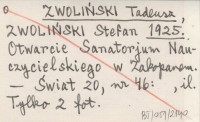 ZWOLIŃSKI Tadeusz,
ZWOLIŃSKI Stefan 1925.
Otwarcie Sanatorjum Nau-
czycielskiego w Zakopanem.
— Świat 20, nr 46: , il.
Tylko 2 fot.